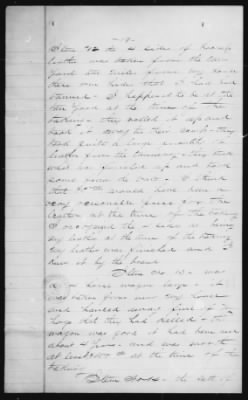 Item No 12 the 4 sides of harness
leather was taken from the tan
yard six miles from my home
there was hides that I had had
tanned - I happened to be at the
tan yard at the time of the
taking - they rolled it up and
took it away to their camp - they
took quite a large quantity of
leather from the tannery - they took
what was finished up and took
some from the vats - I think
that would have been a
very reasonable price for the
leather at the time of the taking
I recognized the 4 sides as being
my leather at the time of the taking
the leather was finished and I
knew it by the brand
Item No 13 - was
a 4 horse wagon large - it
was taken from near my home
and hauled away full of
hogs that they had killed - the
wagon was good it had been run
about 4 years - and was worth
at least at the time of the
taking
Item No - the sett of